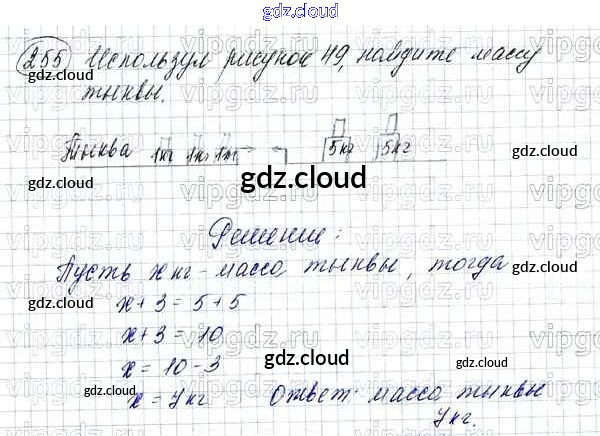 gdz.cloud
255 Используя рисунок 49, найдите массу
gdz.cloud
тыквы.
gdz.cloud
Тыква 1кг 1кг 1кг 5кг 5кг
gdz.cloud
gdz.cloud
gdz.cloud
Решение:
Пусть x кг - масса тыквы, тогда
gdz.cloud
gdz.cloud
x + 3 = 5 + 5
gdz.cloud
x + 3 = 10
gdz.cloud
x = 10 - 3
gdz.cloud
gdz.cloud
x = 7 кг Ответ: масса тыквы
7 кг.
gdz.cloud